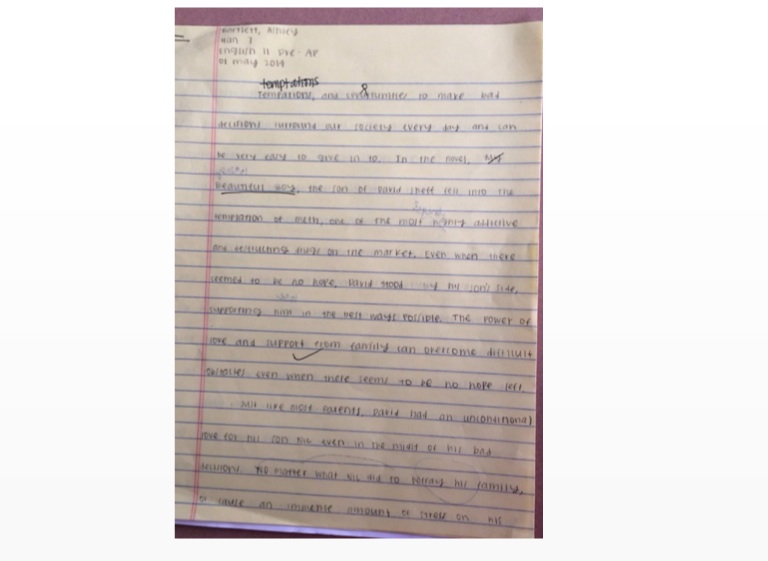 Bartlett,
English 11 Pre-AP
01 May 2019
temptations
Temptations, and opportunities to make bad
decisions surround our society every day and can
be very easy to give in to. In the novel,
Beautiful Boy, the son of David Sheff fell into the
temptation of meth, one of the most highly addictive
and destructing drugs on the market. Even when there
seemed to be no hope, David stood by his son's side,
supporting him in the best ways possible. The power of
love and support from family can overcome difficult
obstacles even when there seems to be no hope left.
Just like most parents, David had an uncontitional
love for his son Nic even in the midst of his bad
decisions. No matter what Nic did to betray his family,
or cause an immense amount of stress on his